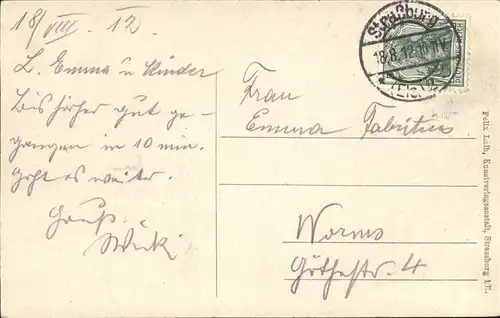 18/VIII. 12.
L. Emma u Kinder
Bis hierher gut ge-
gangen in 10 min.
geht es weiter.
Gruß.
Wicki
Straßburg
18.8.12.10-11V.
* (Els.)
Frau
Emma Fabritius
Worms
Göthestr. 4
Felix Luib, Kunstverlagsanstalt, Strassburg i/E.